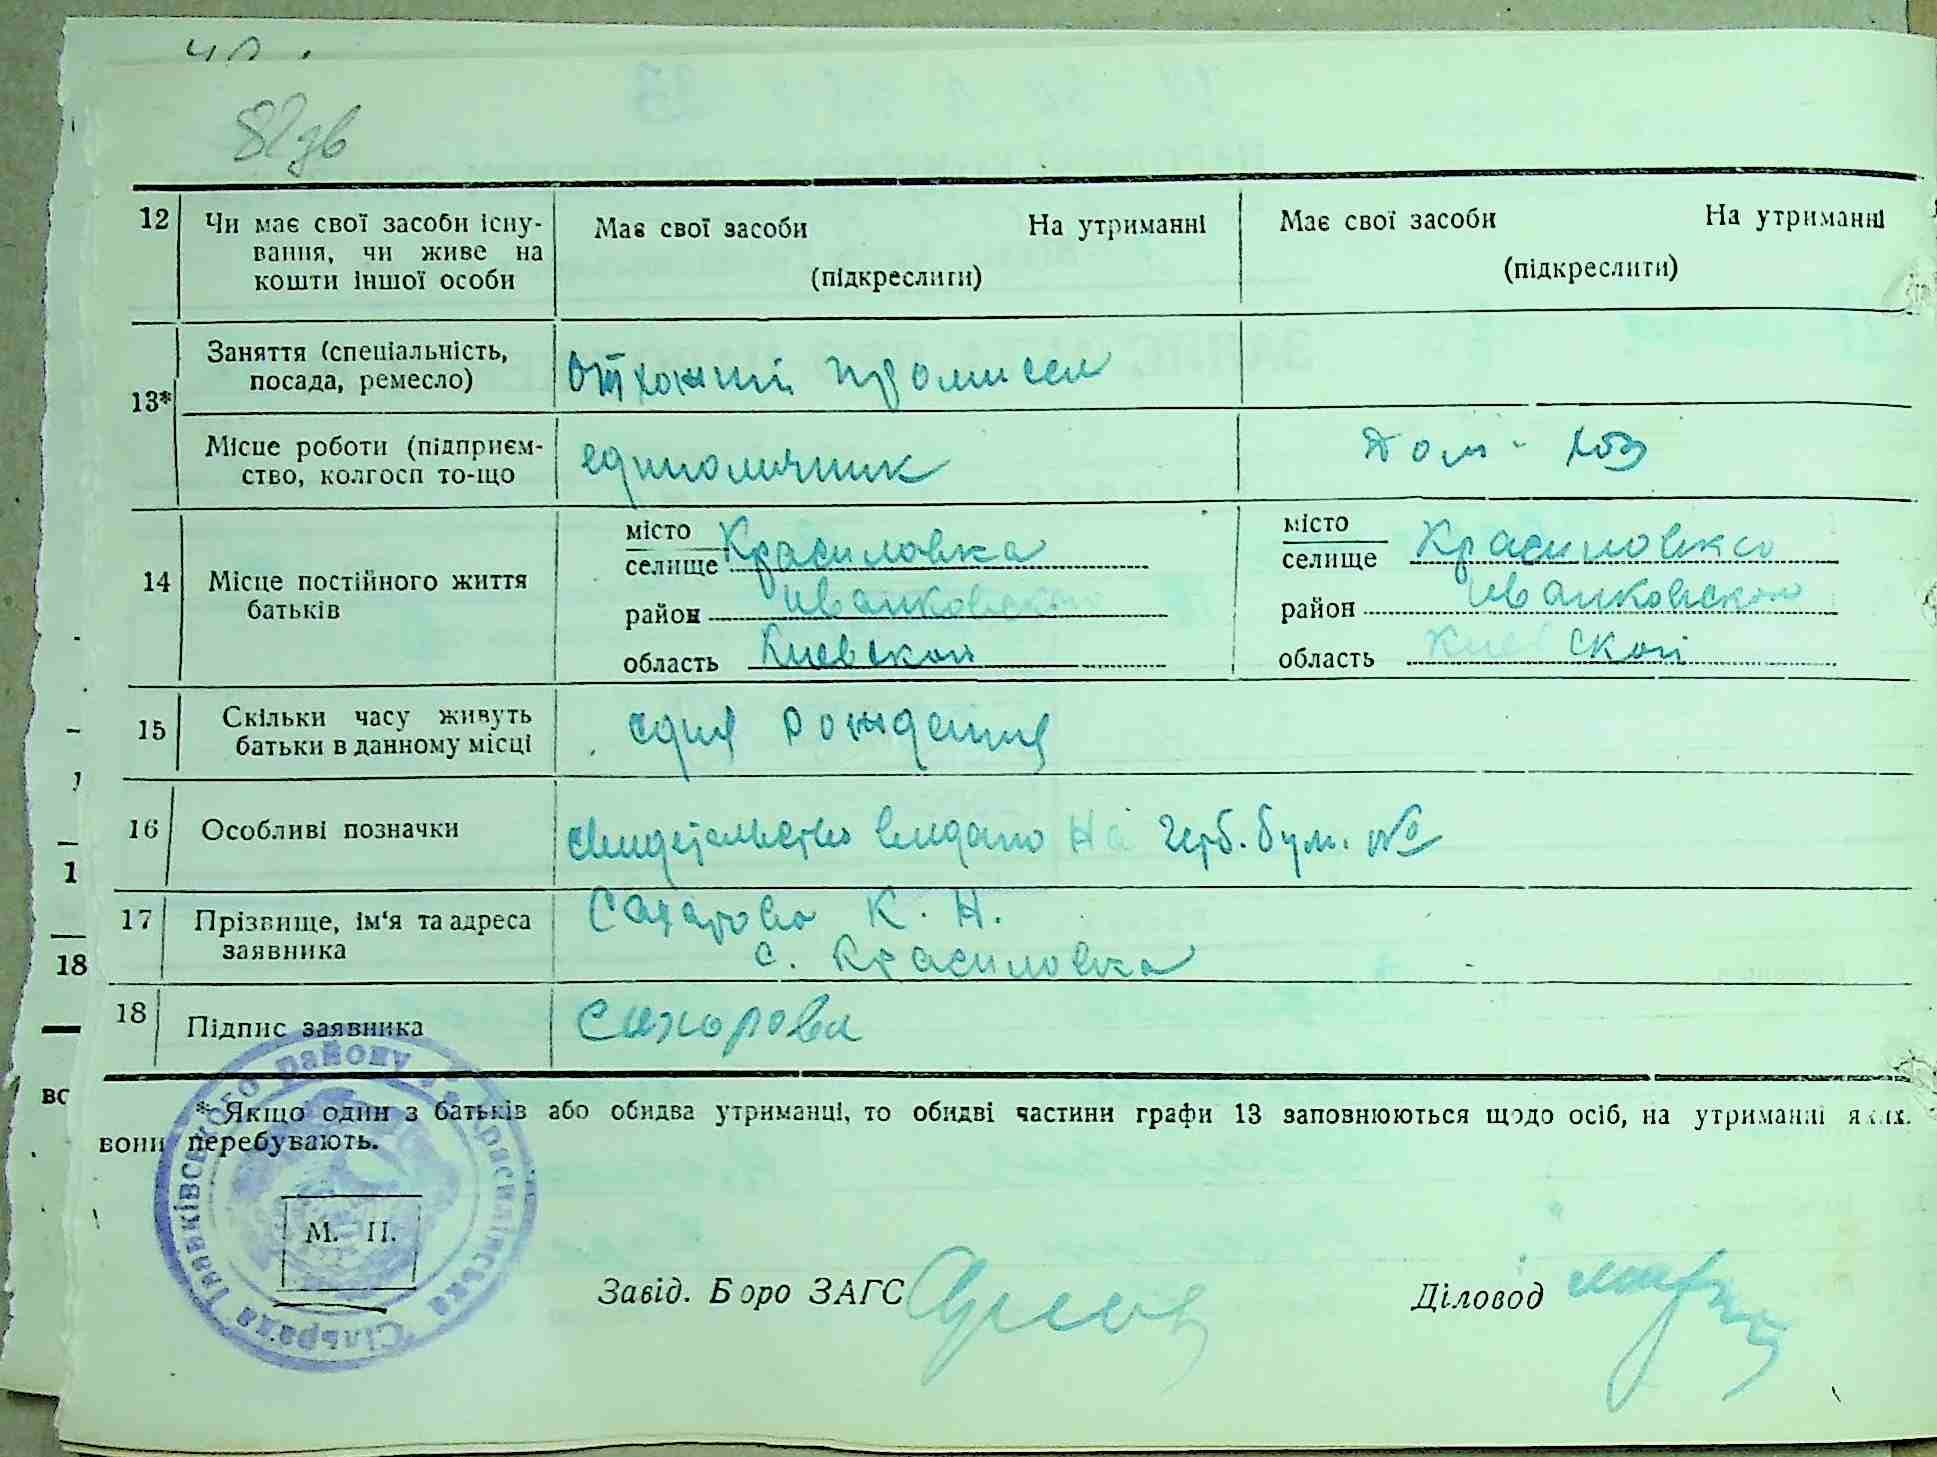 82зв
12 Чи має свої засоби існу-
вання, чи живе на
кошти іншої особи
Має свої засоби На утриманні
(підкреслити)
Має свої засоби На утриманні
(підкреслити)
13*
Заняття (спеціальність,
посада, ремесло)
отхожий промисел
Місце роботи (підприєм-
ство, колгосп то-що
единоличник
Дом-хоз
14 Місце постійного життя
батьків
місто
селище Красиловка
район Иванковского
область Киевской
місто
селище Красиловка
район Иванковского
область Киевской
15 Скільки часу живуть
батьки в данному місці
содня рождения
16 Особливі позначки
свидетельство видано на герб. бум. №
17 Прізвище, ім'я та адреса
заявника
Сахарова К. Н.
с. Красиловка
18 Підпис заявника
Сахорова
* Якщо один з батьків або обидва утриманці, то обидві частини графи 13 заповнюються щодо осіб, на утриманні яких
вони перебувають.
Красилівська Сільрада Іваньківського району
М. П.
Завід. Бюро ЗАГС
Діловод
18